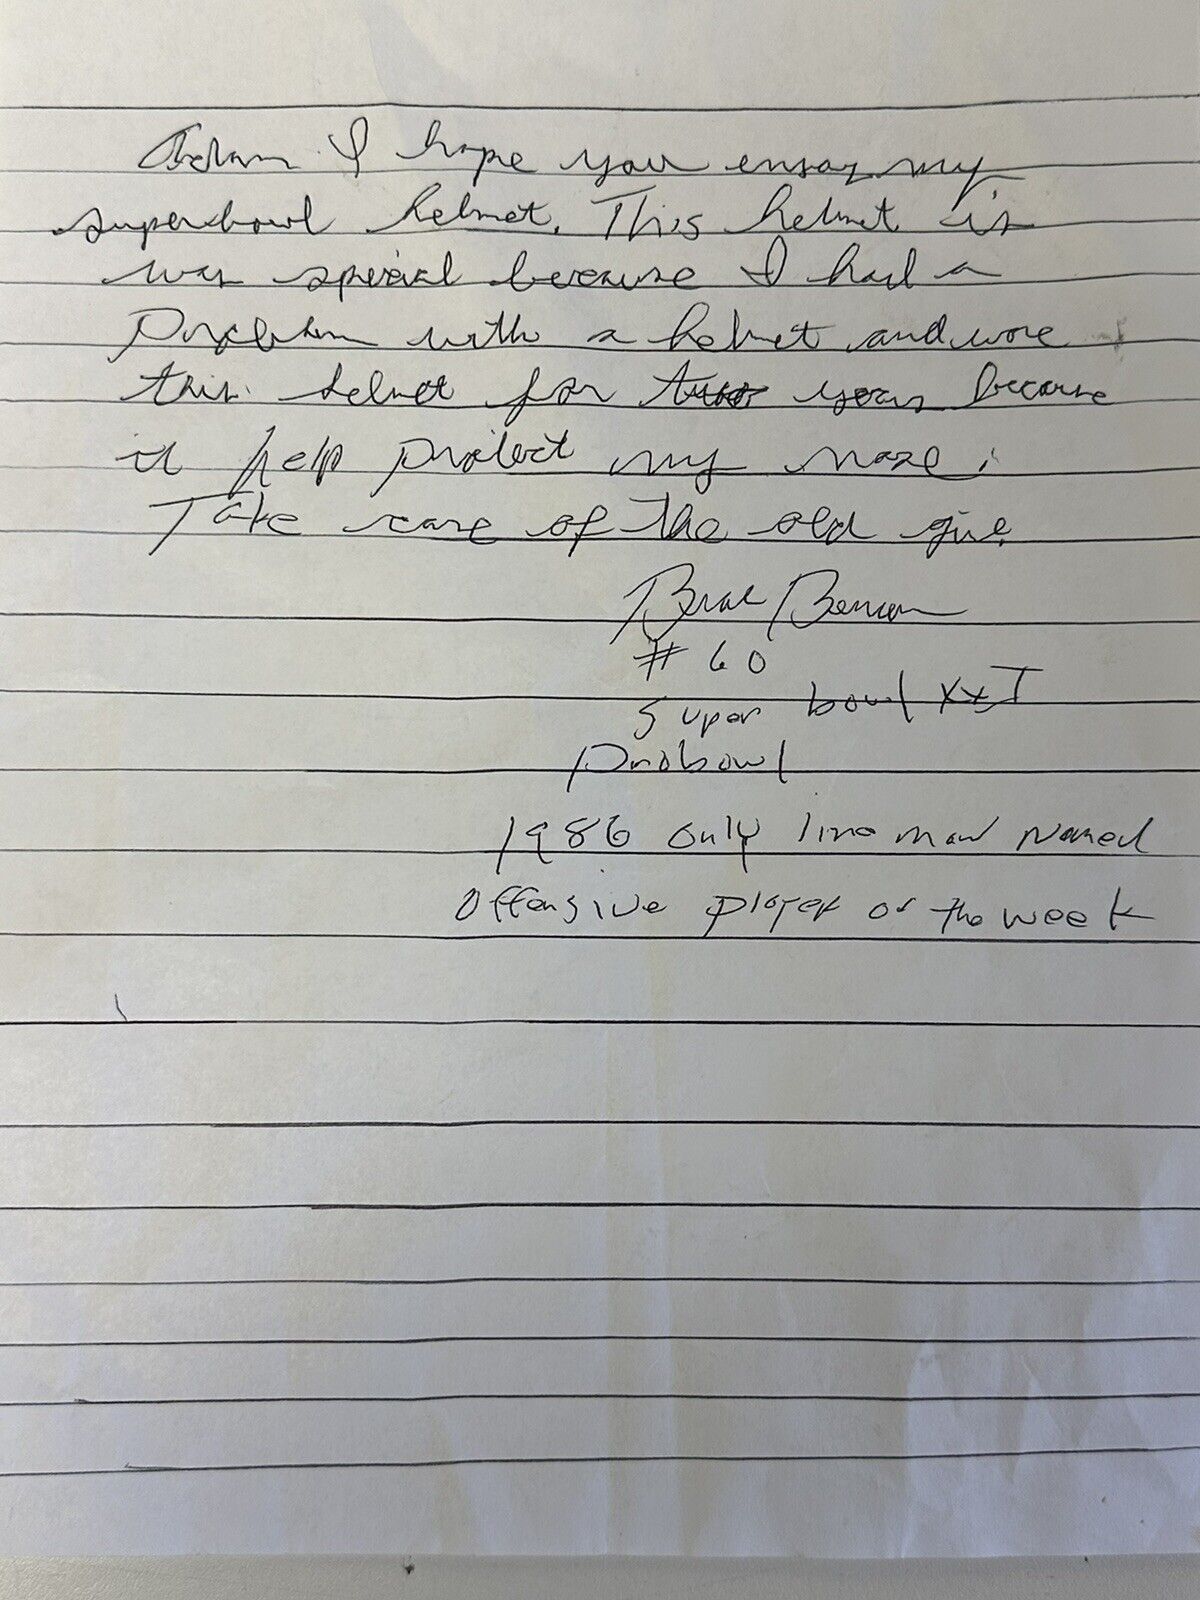 Adam I hope you enjoy my
superbowl helmet. This helmet is
was special because I had a
Problem with a helmet and wore
this helmet for years because
it help protect my nose.
Take care of the old girl
Brad Benson
# 60
Super bowl XXI
Probowl
1986 only line man Named
Offensive player of the week